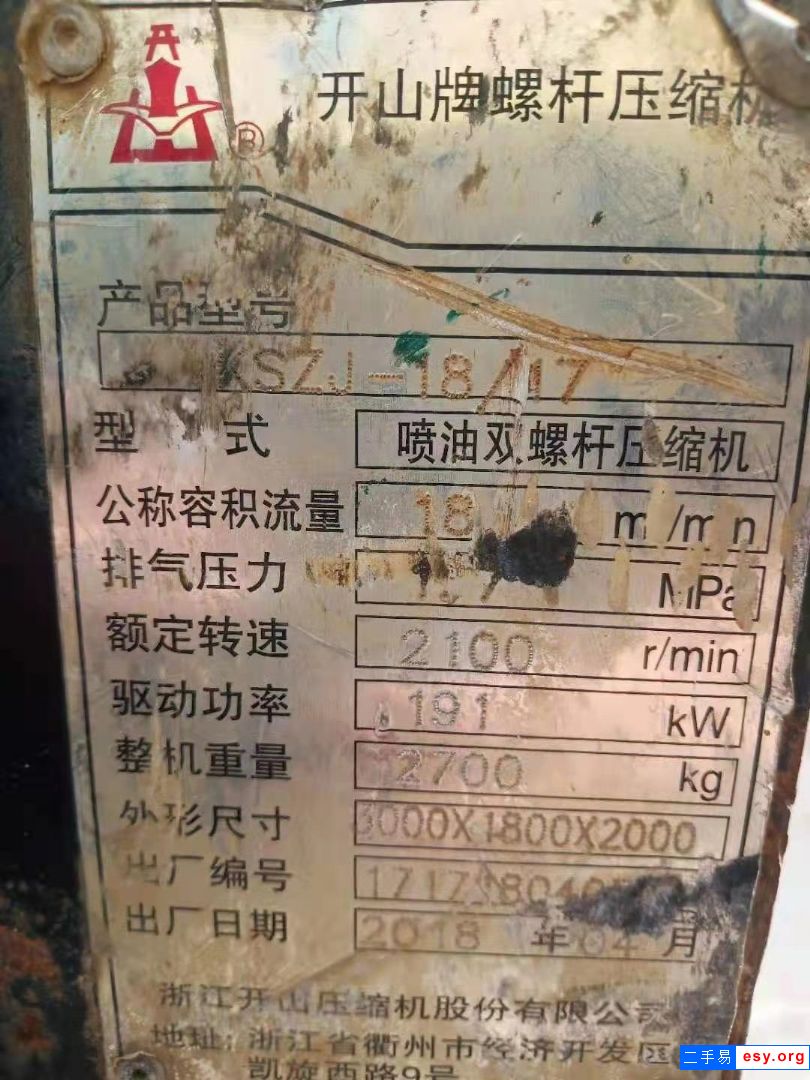 开山牌螺杆压缩机
®
产品型号
KSZJ-18/17
型 式 喷油双螺杆压缩机
公称容积流量 18 m³/min
排气压力 MPa
额定转速 2100 r/min
驱动功率 191 kW
整机重量 2700 kg
外形尺寸 3000X1800X2000
出厂编号
出厂日期 2018 年 04 月
浙江开山压缩机股份有限公司
地址: 浙江省衢州市经济开发区
凯旋西路9号
二手易 esy.org